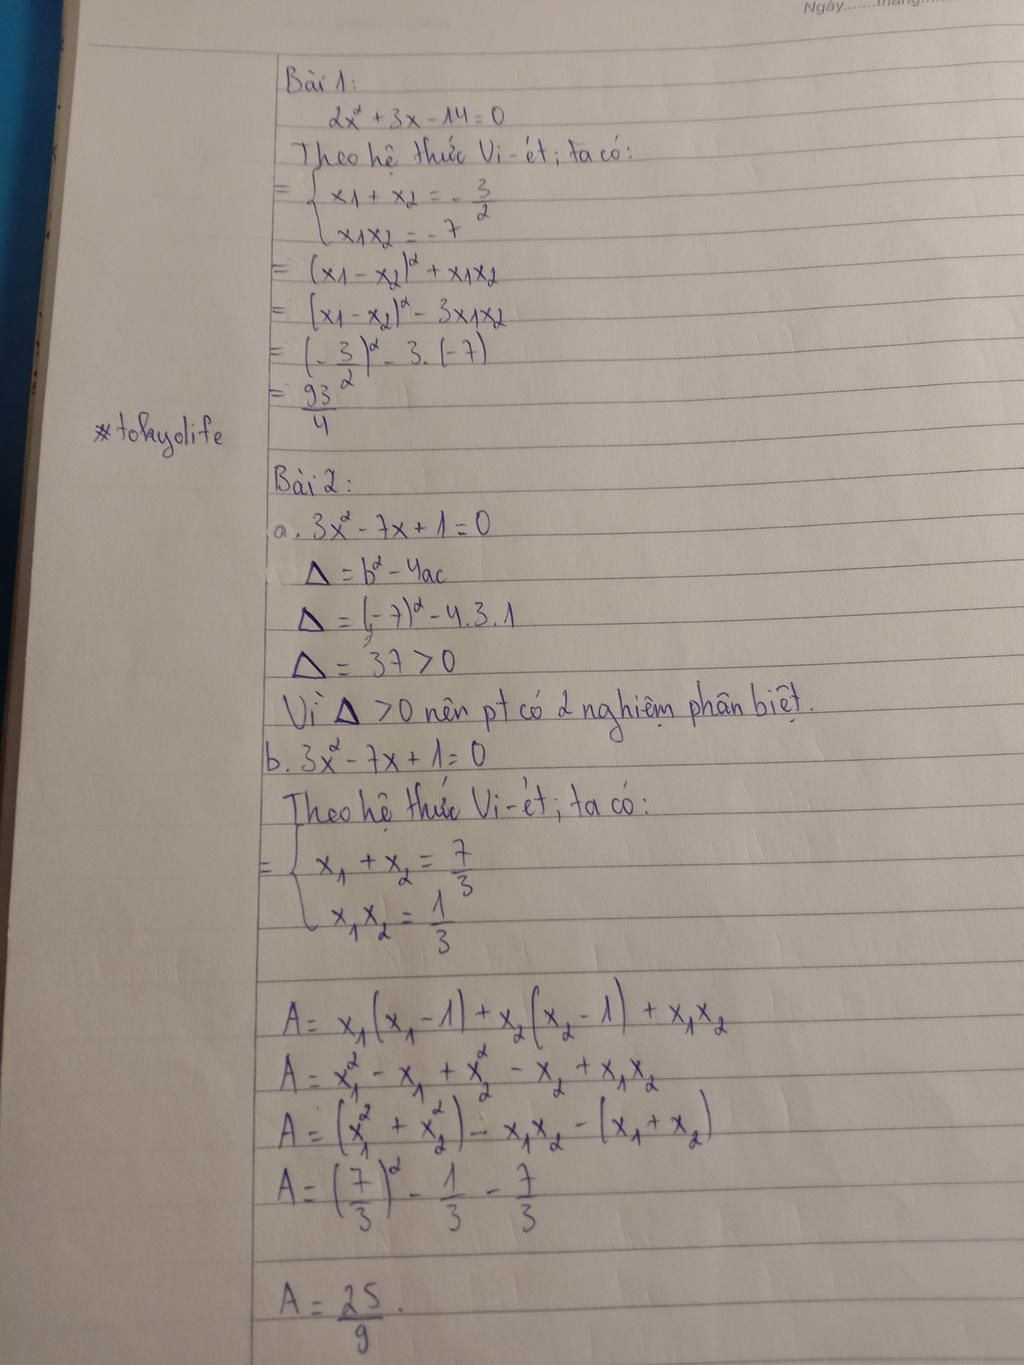 Ngày.......tháng.......
Bài 1:
2x² + 3x - 14 = 0
Theo hệ thức Vi-ét; ta có:
= { x1 + x2 = - 3/2
x1x2 = - 7
= (x1 - x2)² + x1x2
= (x1 - x2)² - 3x1x2
= (- 3/2)² - 3. (-7)
= 93/4
*tokyolife
Bài 2:
a. 3x² - 7x + 1 = 0
Δ = b² - 4ac
Δ = (-7)² - 4.3.1
Δ = 37 > 0
Vì Δ > 0 nên pt có 2 nghiệm phân biệt.
b. 3x² - 7x + 1 = 0
Theo hệ thức Vi-ét; ta có:
= { x₁ + x₂ = 7/3
x₁x₂ = 1/3
A = x₁(x₁ - 1) + x₂(x₂ - 1) + x₁x₂
A = x₁² - x₁ + x₂² - x₂ + x₁x₂
A = (x₁² + x₂²) - x₁x₂ - (x₁ + x₂)
A = (7/3)² - 1/3 - 7/3
A = 25/9.